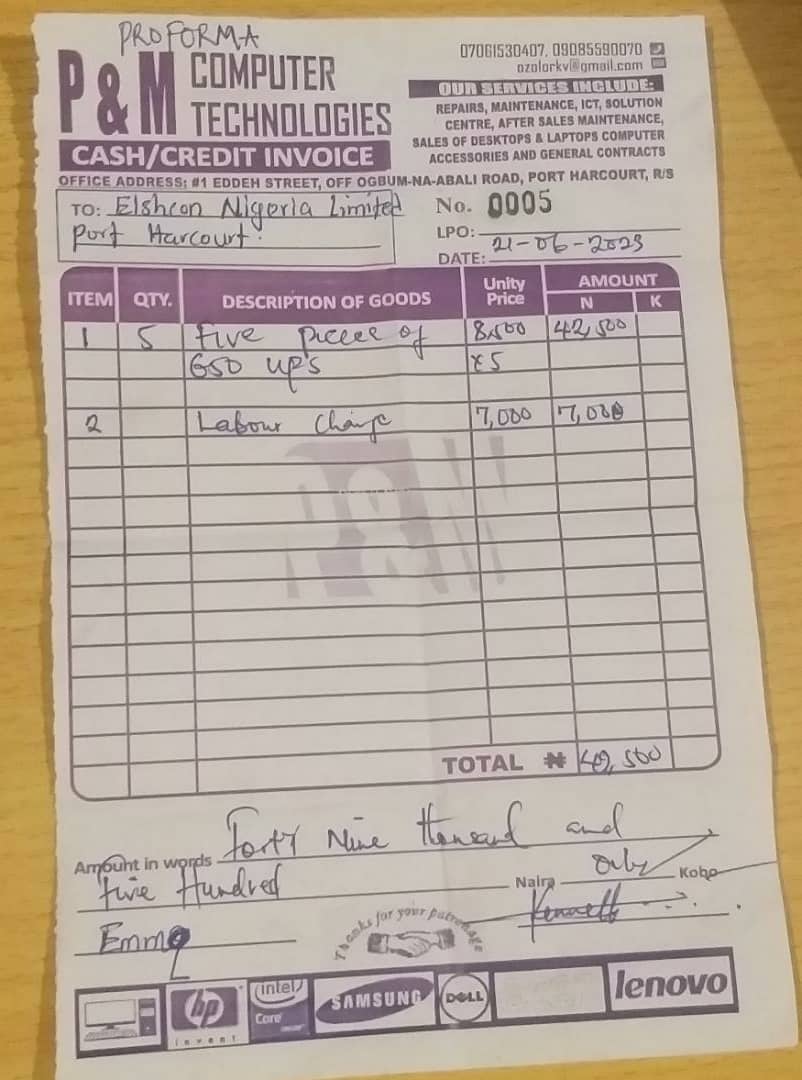 PROFORMA
P & M COMPUTER TECHNOLOGIES
CASH/CREDIT INVOICE
07061530407, 09085590070
ozolorkv@gmail.com
OUR SERVICES INCLUDE:
REPAIRS, MAINTENANCE, ICT, SOLUTION
CENTRE, AFTER SALES MAINTENANCE,
SALES OF DESKTOPS & LAPTOPS COMPUTER
ACCESSORIES AND GENERAL CONTRACTS
OFFICE ADDRESS: #1 EDDEH STREET, OFF OGBUM-NA-ABALI ROAD, PORT HARCOURT, R/S
TO: Elshcon Nigeria Limited
Port Harcourt.
No. 0005
LPO:
DATE: 21-06-2023
ITEM QTY. DESCRIPTION OF GOODS Unity Price AMOUNT N K
1 5 Five piece of 8,500 42,500
650 UPS x5
2 Labour Charge 7,000 7,000
P&M
TOTAL ₦ 49,500
Amount in words Forty Nine thousand and
Five Hundred Naira Only Kobo
Emma
Thanks for your patronage
Kenneth
hp
invent
intel
Core
SAMSUNG
DELL
lenovo